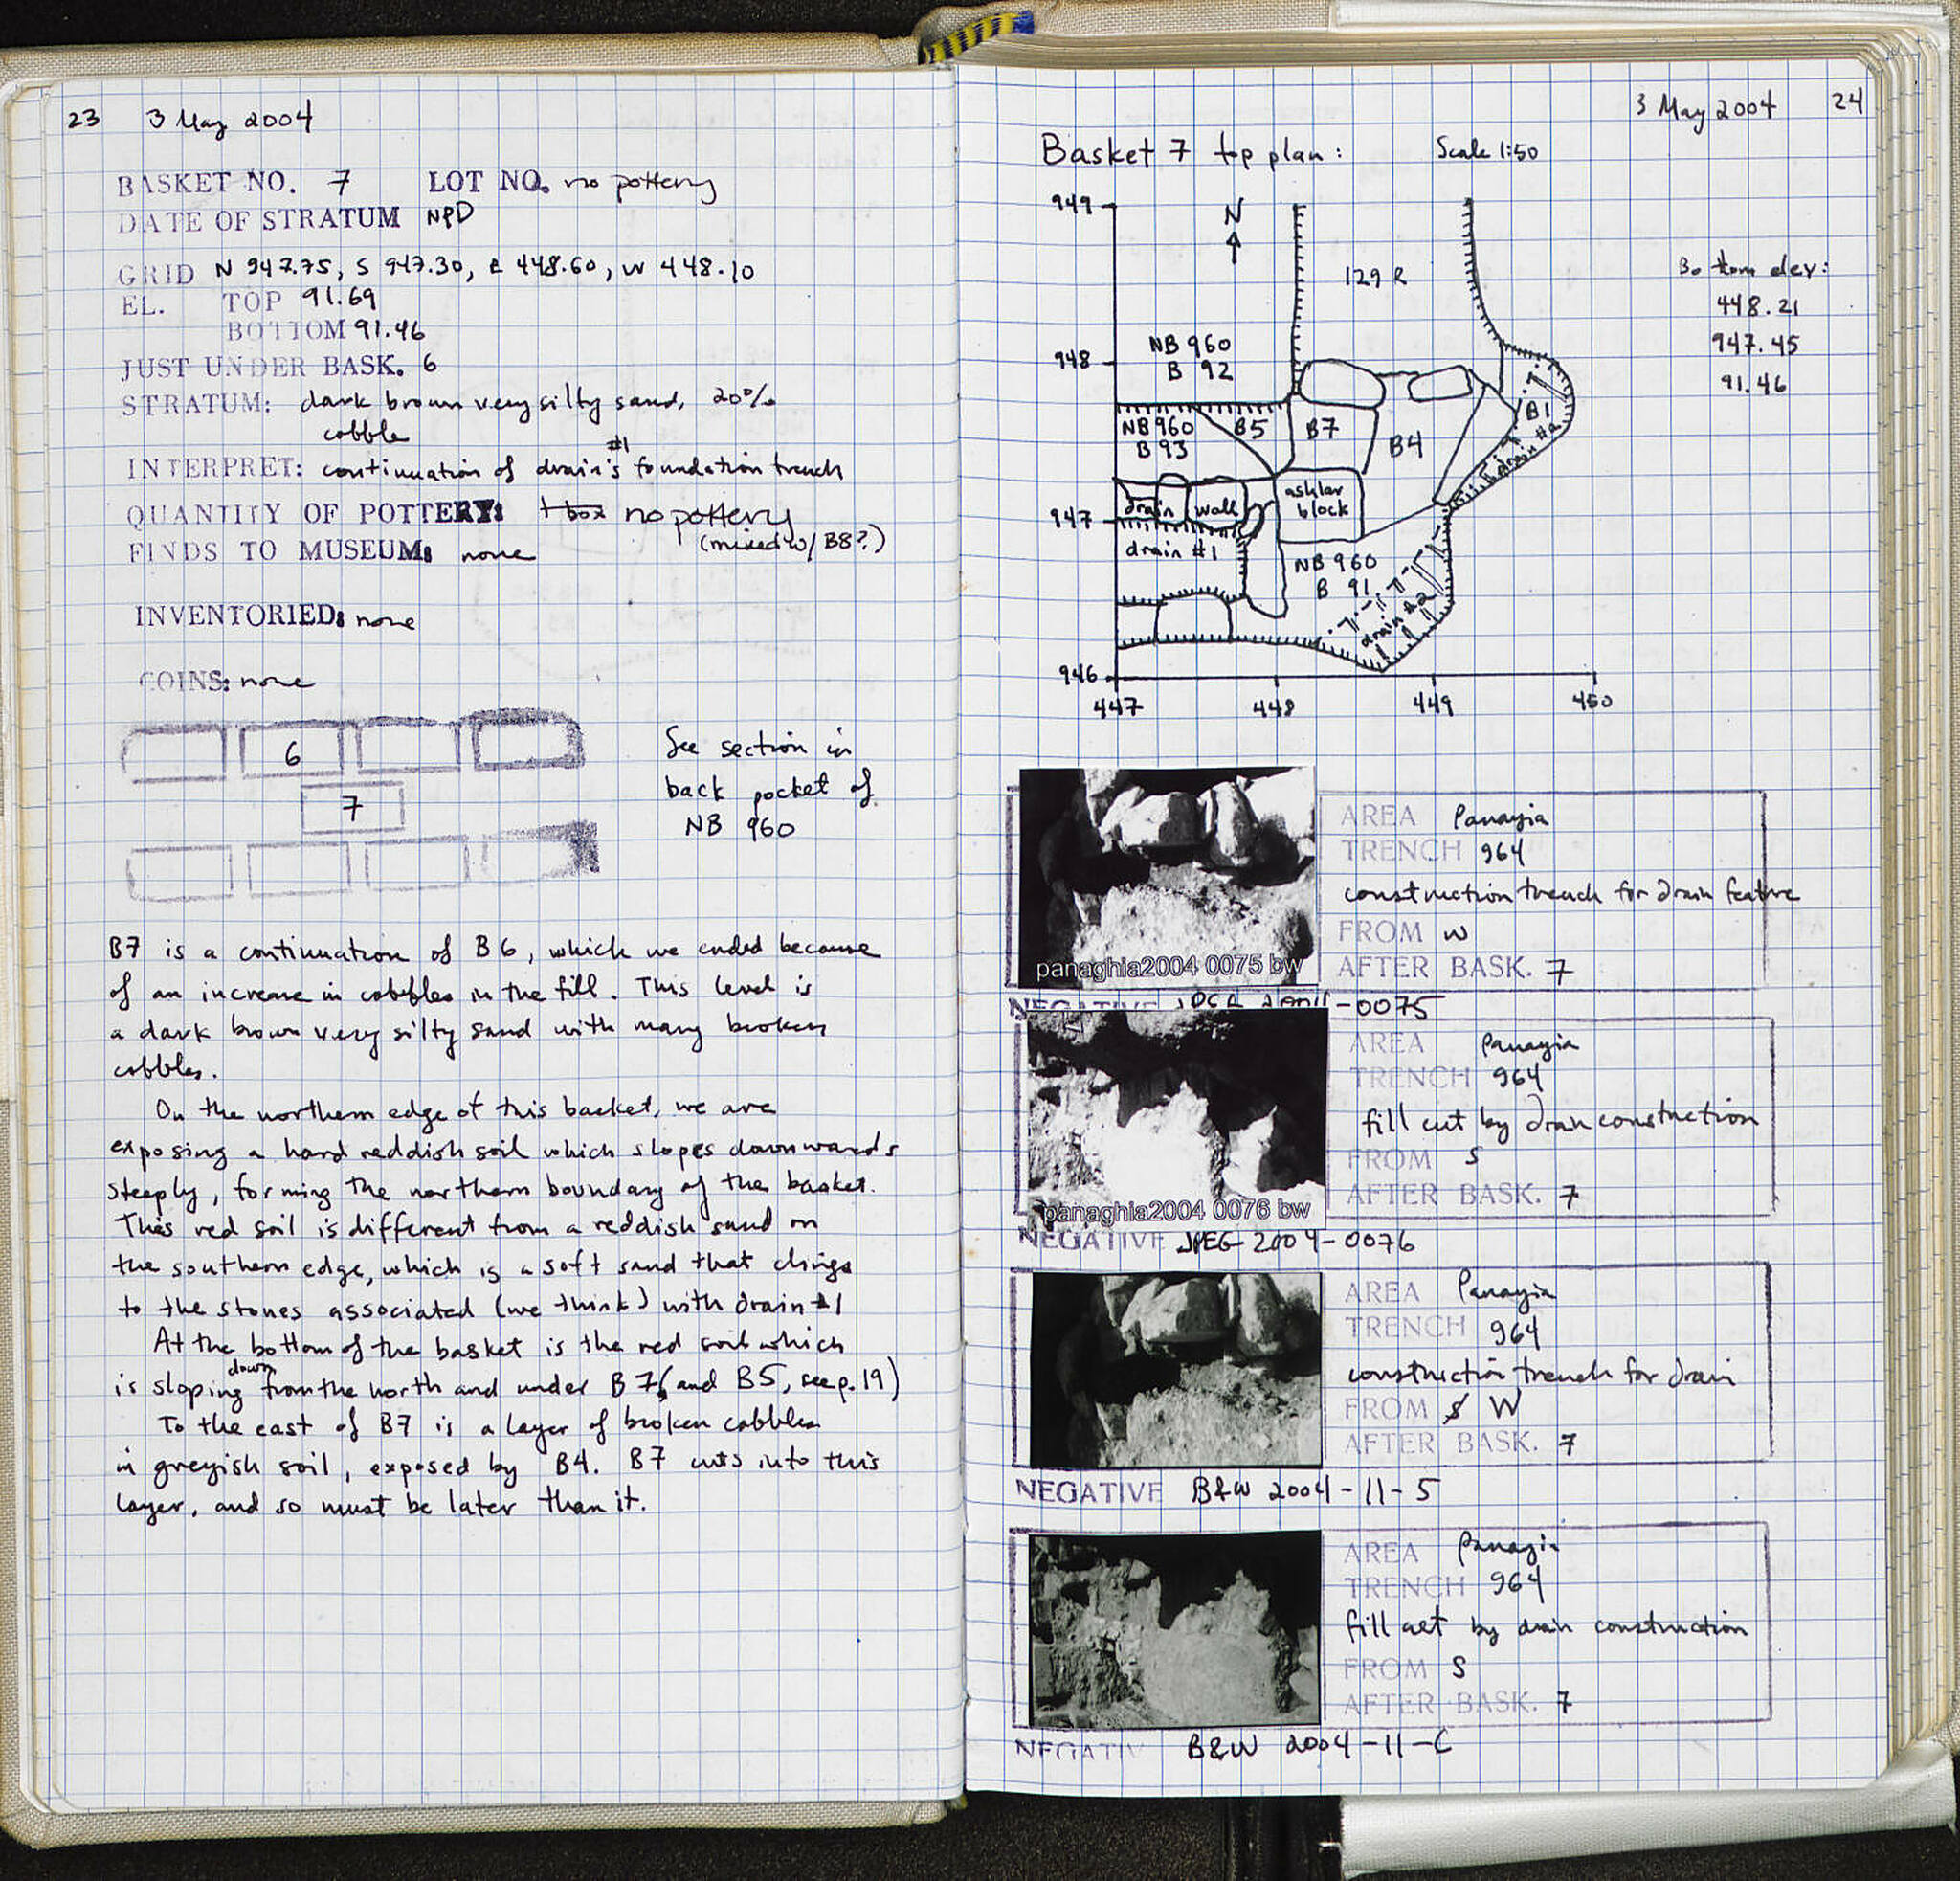 23 3 May 2004
BASKET NO. 7 LOT NO. no pottery
DATE OF STRATUM NPD
GRID N 947.75, S 947.30, E 448.60, W 448.10
EL. TOP 91.69
BOTTOM 91.46
JUST UNDER BASK. 6
STRATUM: dark brown very silty sand, 20%
cobble
#1
INTERPRET: continuation of drain's foundation trench
QUANTITY OF POTTERY: 1 box no pottery
(mixed w/ B8?)
FINDS TO MUSEUM: none
INVENTORIED: none
COINS: none
6
7
See section in
back pocket of
NB 960
B7 is a continuation of B6, which we ended because
of an increase in cobbles in the fill. This level is
a dark brown very silty sand with many broken
cobbles.
On the northern edge of this basket, we are
exposing a hard reddish soil which slopes downwards
steeply, forming the northern boundary of the basket.
This red soil is different from a reddish sand on
the southern edge, which is a soft sand that clings
to the stones associated (we think) with drain #1
At the bottom of the basket is the red soil which
down
is sloping from the north and under B7 (and B5, see p.19)
To the east of B7 is a layer of broken cobbles
in greyish soil, exposed by B4. B7 cuts into this
layer, and so must be later than it.
3 May 2004 24
Basket 7 top plan: Scale 1:50
949
N
129 R
Bottom elev:
448.21
947.45
91.46
948
NB 960
B 92
NB 960
B 93
B5
B7
B4
B1
drain #2
947
drain wall
ashlar
block
drain #1
NB 960
B 91
drain #2
946
447 448 449 450
panaghia2004 0075 bw
AREA Panayia
TRENCH 964
construction trench for drain feature
FROM W
AFTER BASK. 7
NEGATIVE -0075
panaghia2004 0076 bw
AREA Panayia
TRENCH 964
fill cut by drain construction
FROM S
AFTER BASK. 7
NEGATIVE JPEG 2004-0076
AREA Panayia
TRENCH 964
construction trench for drain
FROM S W
AFTER BASK. 7
NEGATIVE B&W 2004-11-5
AREA Panayia
TRENCH 964
fill cut by drain construction
FROM S
AFTER BASK. 7
NEGATIV B&W 2004-11-6